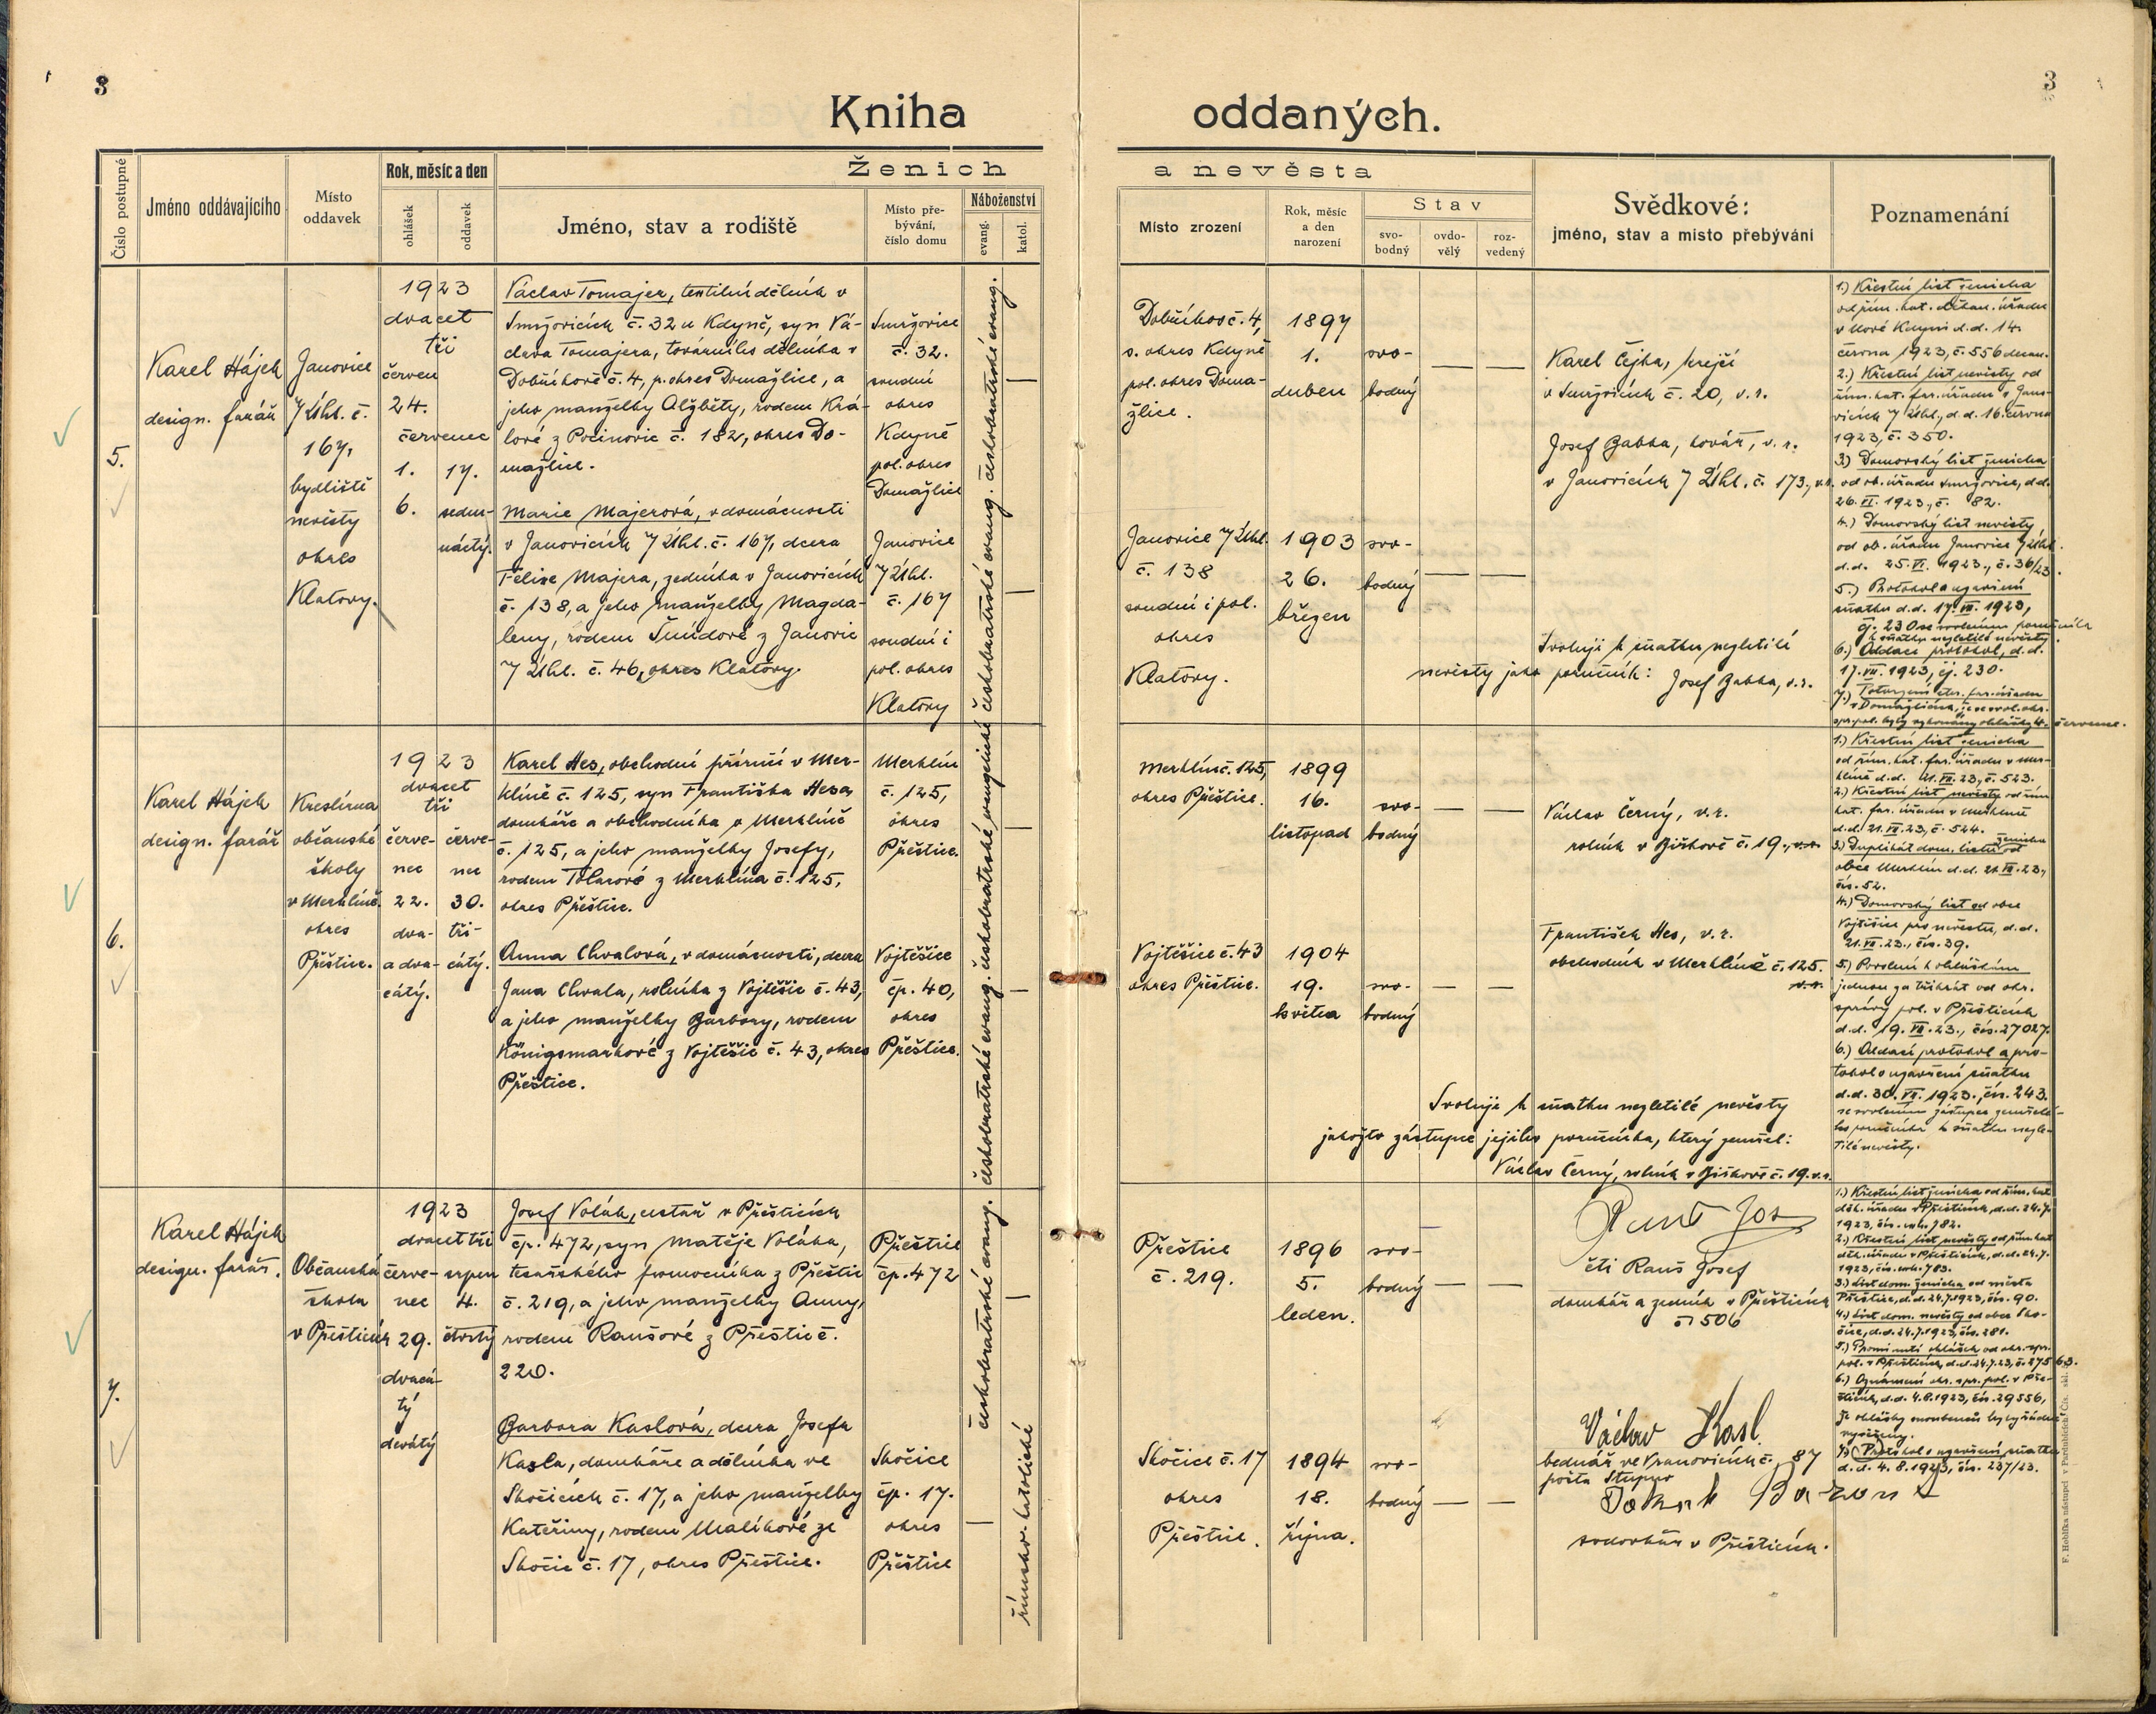 3
3
Kniha
oddaných.
Číslo postupné
Jméno oddávajícího
Místo
oddavek
Rok, měsíc a den
ohlášek
oddavek
Ženich
Jméno, stav a rodiště
Místo pře-
bývání,
číslo domu
Náboženství
evang.
katol.
a nevěsta
Místo zrození
Rok, měsíc
a den
narození
Stav
svo-
bodný
ovdo-
vělý
roz-
vedený
Svědkové:
jméno, stav a místo přebývání
Poznamenání
5.
Karel Hájek
design. farář
Janovice
n/Úhl. č.
167,
bydliště
nevěsty
okres
Klatovy.
1923
dvacet
tři
červen
24.
červenec
1.
17.
6.
sedm-
náctý.
Václav Tomajer, textilní dělník v
Smržovicích č. 32 u Kdyně, syn Vá-
clava Tomajera, továrního dělníka v
Dobříkově č. 4, p. okres Domažlice, a
jeho manželky Alžběty, rodem Krá-
lové z Pocinovic č. 182, okres Do-
mažlice.
Smržovice
č. 32.
soudní
okres
Kdyně
pol. okres
Domažlice
Marie Majerová, v domácnosti
v Janovicích n/Úhl. č. 167, dcera
Felixe Majera, zedníka v Janovicích
č. 138, a jeho manželky Magda-
leny, rodem Šmídové z Janovic
n/Úhl. č. 46, okres Klatovy.
Janovice
n/Úhl.
č. 167
soudní i
pol. okres
Klatovy
Dobříkov č. 4,
s. okres Kdyně
pol. okres Doma-
žlice.
1897
1.
duben
svo-
bodný
Karel Čejka, krejčí
v Smržovicích č. 20, v. r.
Josef Babka, kovář, v. r.
v Janovicích n/Úhl. č. 173, v.r.
Janovice n/Úhl.
č. 138
soudní i pol.
okres
Klatovy.
1903
26.
březen
svo-
bodný
Svoluji k sňatku nezletilé
nevěsty jako poručník: Josef Babka, v. r.
1.) Křestní list ženicha
od řím. kat. děkan. úřadu
v Nové Kdyni d.d. 14.
června 1923, č. 556 dekan.
2.) Křestní list nevěsty od
řím. kat. far. úřadu v Jano-
vicích n/Úhl., d. d. 16. června
1923, č. 350.
3.) Domovský list ženicha
od ob. úřadu Smržovice, d.d.
26. VI. 1923, č. 82.
4.) Domovský list nevěsty
od ob. úřadu Janovice n/Úhl.
d.d. 25. VI. 1923, č. 36/23.
5.) Protokol o uzavření
sňatku d.d. 17. VII. 1923,
čj. 230 se svolením poručníka
k sňatku nezletilé nevěsty.
6.) Oddací protokol, d. d.
17. VII. 1923, čj. 230.
6.
Karel Hájek
design. farář
Kreslírna
občanské
školy
v Merklíně.
okres
Přeštice.
1923
dvacet
tři
červe-
nec
22.
dva-
a dva-
cátý.
červe-
nec
30.
tři-
cátý.
Karel Hes, obchodní příručí v Mer-
klíně č. 125, syn Františka Hesa,
domkáře a obchodníka v Merklíně
č. 125, a jeho manželky Josefy,
rodem Tolarové z Merklína č. 125,
okres Přeštice.
Merklín
č. 125,
okres
Přeštice.
Anna Chvalová, v domácnosti, dcera
Jana Chvala, rolníka z Vojtěšic č. 43,
a jeho manželky Barbory, rodem
Königsmarkové z Vojtěšic č. 43, okres
Přeštice.
Vojtěšice
čp. 40,
okres
Přeštice.
Merklín č. 125,
okres Přeštice.
1899
16.
listopad
svo-
bodný
Václav Černý, v. r.
rolník v Biřkově č. 19., v. r.
František Hes, v. r.
obchodník v Merklíně č. 125.
v. r.
Vojtěšice č. 43
okres Přeštice.
1904
19.
května
svo-
bodný
Svoluje k sňatku nezletilé nevěsty
jakožto zástupce jejího poručníka, který zemřel:
Václav Černý, rolník v Biřkově č. 19. v. r.
1.) Křestní list ženicha
od řím. kat. far. úřadu v Mer-
klíně d.d. 21. VII. 23, č. 523.
2.) Křestní list nevěsty od řím.
kat. far. úřadu v Merklíně
d.d. 21. VII. 23, č. 524.
3.) Duplikát dom. listu ženicha od
obce Merklín d.d. 21. VII. 23,
čís. 52.
4.) Domovský list od obce
Vojtěšice pro nevěstu, d. d.
21. VII. 23, čís. 39.
5.) Povolení k ohláškám
jednou za třikrát od okr.
správy pol. v Přešticích
d.d. 19. VII. 23., čís. 27027.
6.) Oddací protokol a pro-
tokol o uzavření sňatku
d.d. 30. VII. 1923., čís. 243.
se svolením zástupce zemřelé-
ho poručníka k sňatku nezle-
tilé nevěsty.
7.
Karel Hájek
design. farář.
Občanská
škola
v Přešticích
1923
dvacet tři
červe-
nec
29.
dvacá-
tý
devátý
srpen
4.
čtvrtý
Josef Volák, cestář v Přešticích
čp. 472, syn Matěje Voláka,
tesařského pomocníka z Přeštic
č. 219, a jeho manželky Anny,
rodem Raušové z Přeštic č.
220.
Přeštice
čp. 472
Barbora Kaslová, dcera Josefa
Kasla, domkáře a dělníka ve
Skočicích č. 17, a jeho manželky
Kateřiny, rodem Malíkové ze
Skočic č. 17, okres Přeštice.
Skočice
čp. 17.
okres
Přeštice
českobratrské evang. českobratrské evang. českobratrské evangelické českobratrské evang. českobratrské evang.
římsko-katolické
Přeštice
č. 219.
1896
5.
leden.
svo-
bodný
čti Rauš Josef
domkář a zedník v Přešticích
č. 506
Václav Kasl
bednář ve Vranovicích č. 87
pošta Stupno
v Přešticích.
Skočice č. 17
okres
Přeštice.
1894
18.
října.
svo-
bodný
1.) Křestní list ženicha od řím. kat.
děk. úřadu v Přešticích, d.d. 24.7.
1923, čís. 782.
2.) Křestní list nevěsty od řím. kat.
děk. úřadu v Přešticích, d.d. 24.7.
1923, čís. 783.
3.) List dom. ženicha od města
Přeštice, d.d. 24.7.1923, čís. 90.
4.) List dom. nevěsty od obce Sko-
čice, d.d. 24.7.1923, čís. 281.
5.) Prominutí ohlášek od okr. spr.
pol. v Přešticích, d.d. 24.7.23, č. 27563.
6.) Oznámení okr. spr. pol. v Pře-
šticích, d.d. 4.8.1923, čís. 29556,
7.) Protokol o uzavření sňatku
d.d. 4. 8. 1923, čís. 237/23.